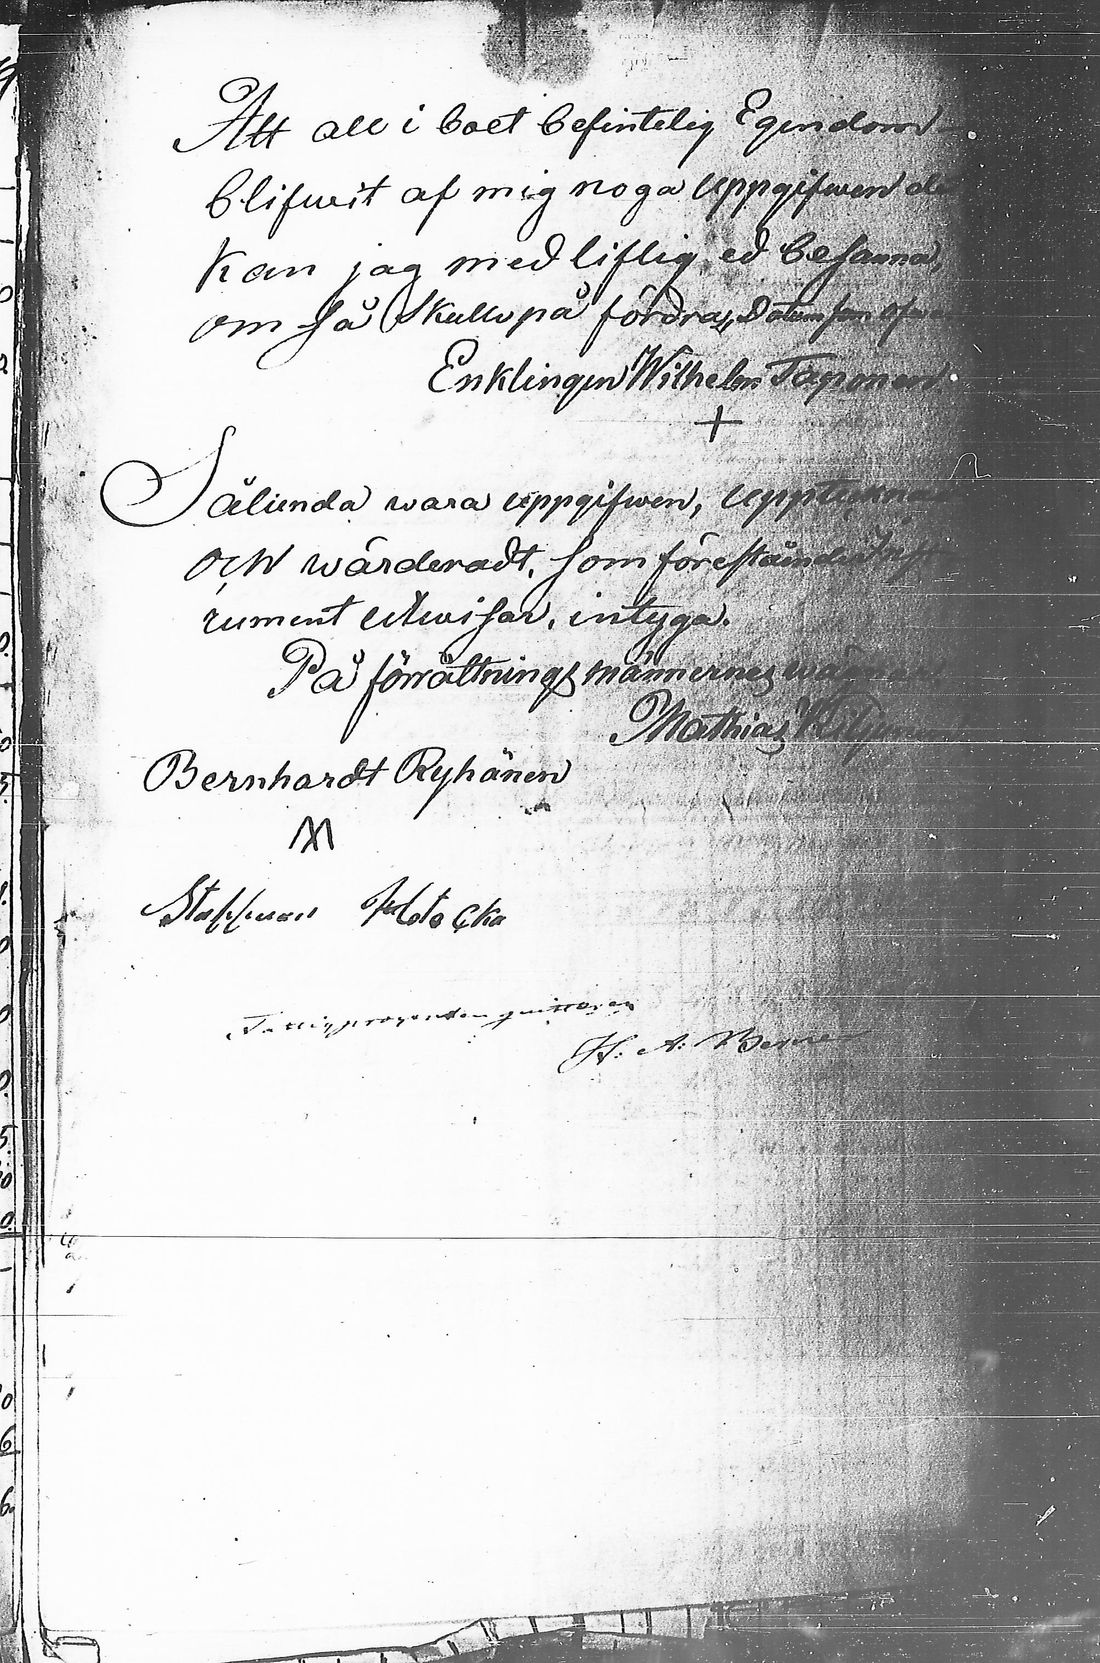 Att all i boet befintelig Egendom
blifwit af mig noga uppgifwen
kan jag med liflig ed besanna,
om så skulle på fördra, Datum som ofwan
Enklingen Wilhelm Taponen
+
Sålunda wara uppgifwen, upptecknad
och wärderadt, som föreståndes Inst
rument utwisar, intyga.
På förrättnings männernes wägnar
Mathias
Bernhardt Ryhänen
Staffuan
Fattigprosenten quitteras
H. A.